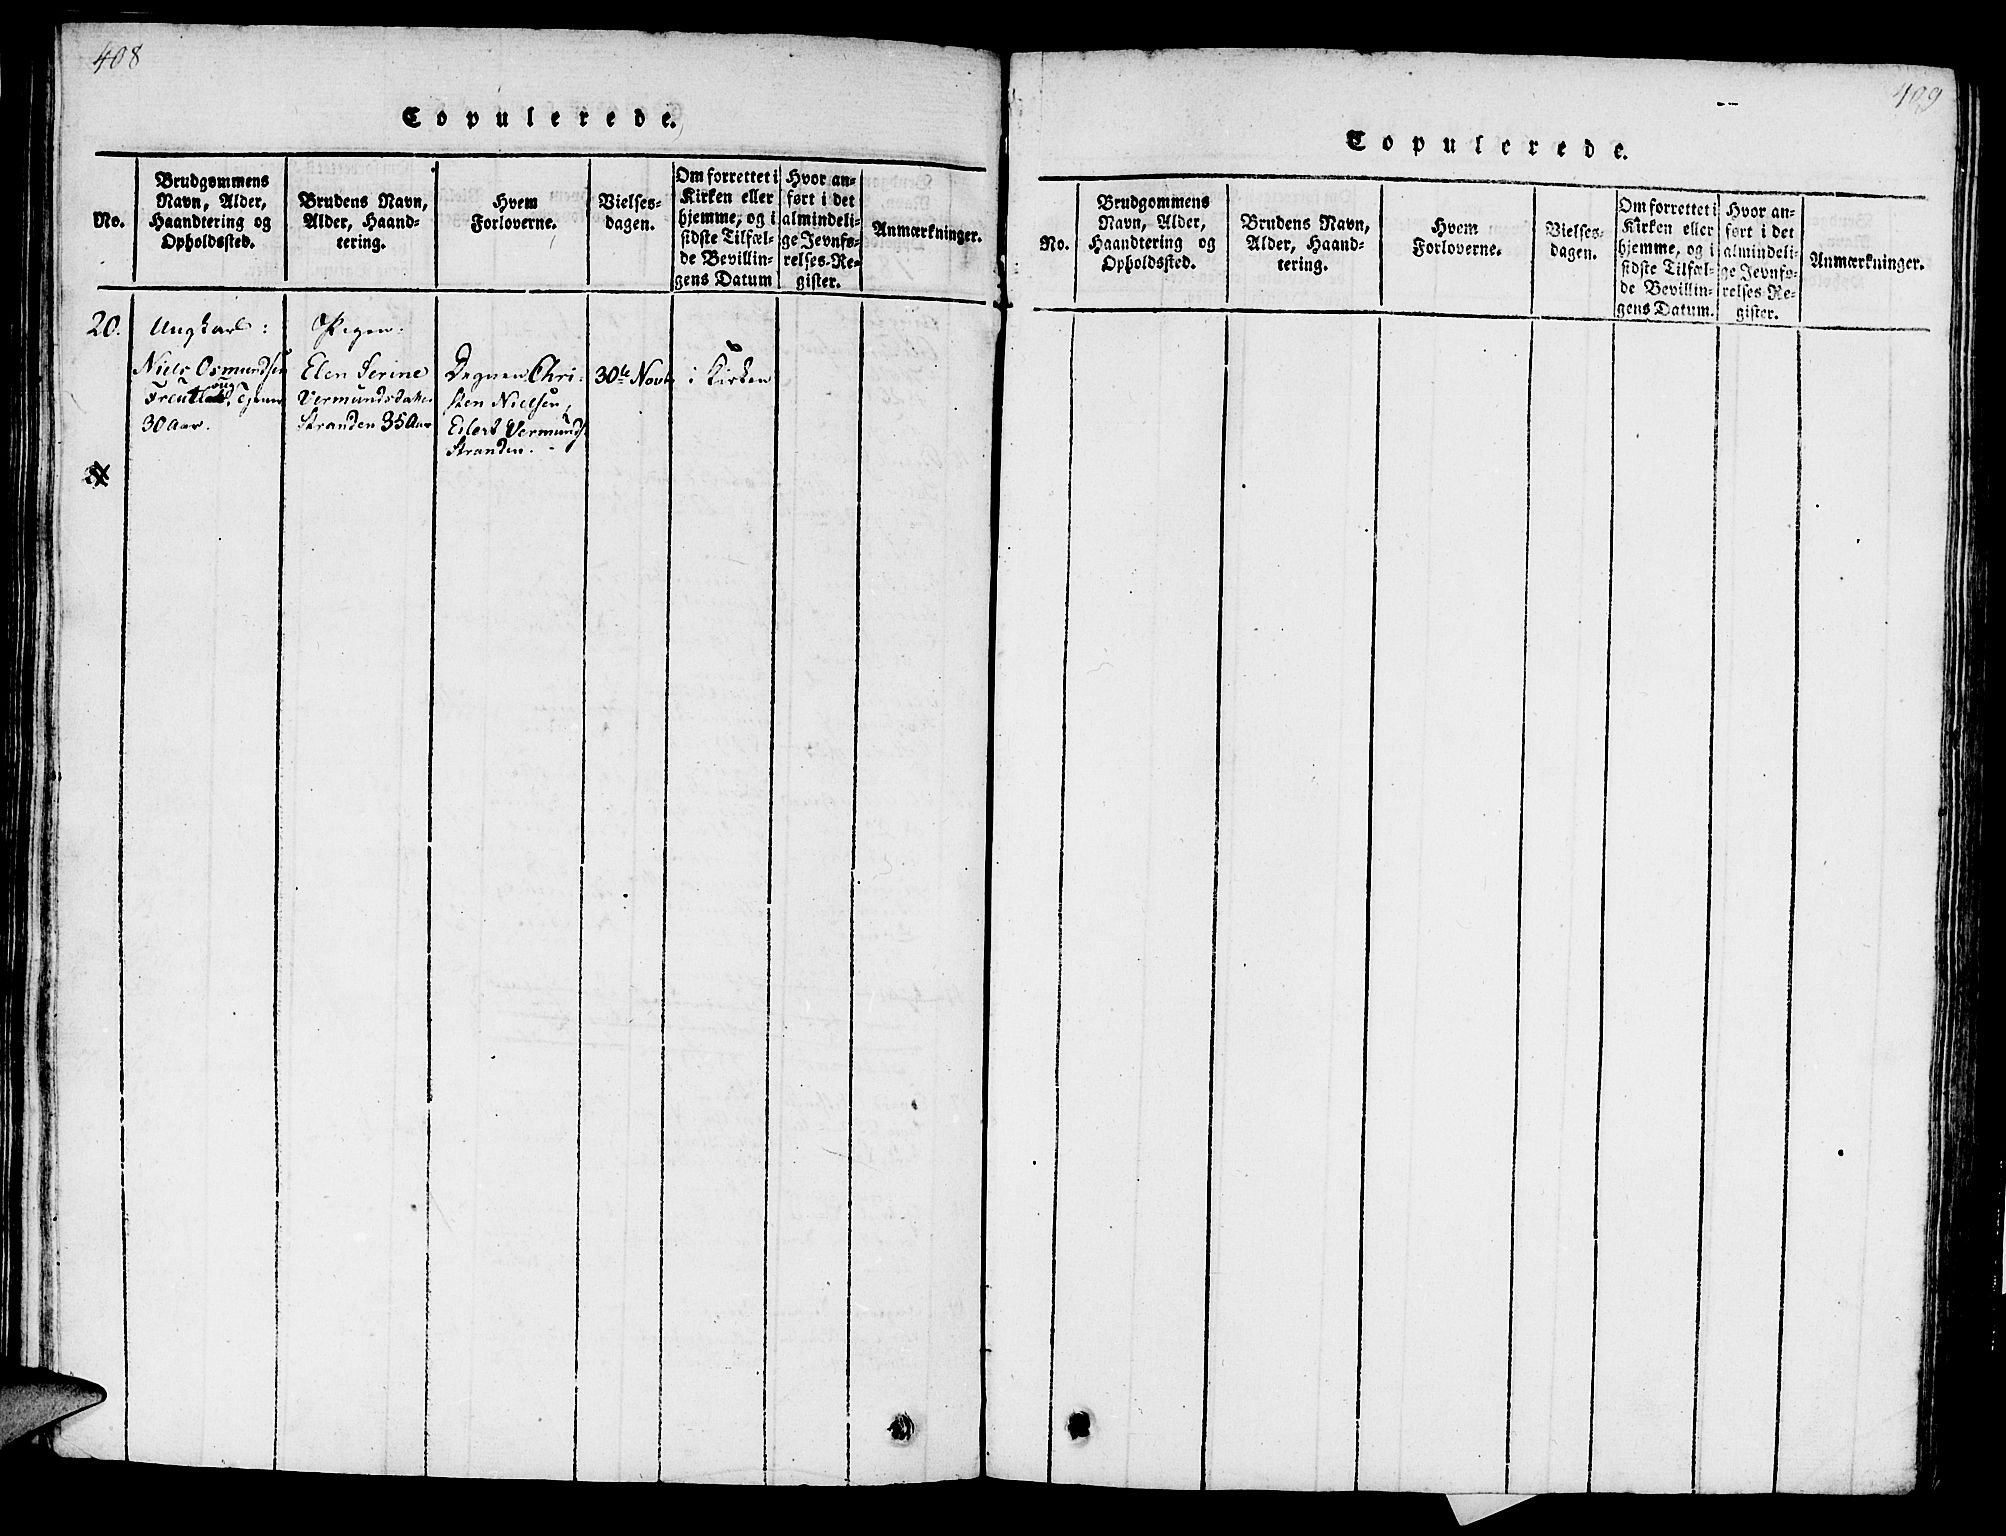 408
Copulerede.
No.
Brudgommens
Navn, Alder,
Haandtering og
Opholdssted.
Brudens Navn,
Alder, Haand-
tering.
Hvem
Forloverne.
Vielses-
dagen.
Om forrettet i
Kirken eller
hjemme, og i
sidste Tilfæl-
de Bevillin-
gens Datum
Hvor an-
ført i det
almindeli-
ge Jevnfø-
relses-Re-
gister.
Anmærkninger.
20.
Ungkarl:
Niels Osmundsen
30 Aar.
Pigen.
Elen Serine
Vermundsdatter
Stranden 35 Aar
Degnen Chri-
sten Nielsen,
Eilert Vermunds
Stranden.
30te Novb
i Kirken
409
Copulerede.
No.
Brudgommens
Navn, Alder,
Haandtering og
Opholdssted.
Brudens Navn,
Alder, Haand-
tering.
Hvem
Forloverne.
Vielses-
dagen.
Om forrettet i
Kirken eller
hjemme, og i
sidste Tilfæl-
de Bevillin-
gens Datum.
Hvor an-
ført i det
almindeli-
ge Jevnfø-
relses-Re-
gister.
Anmærkninger.